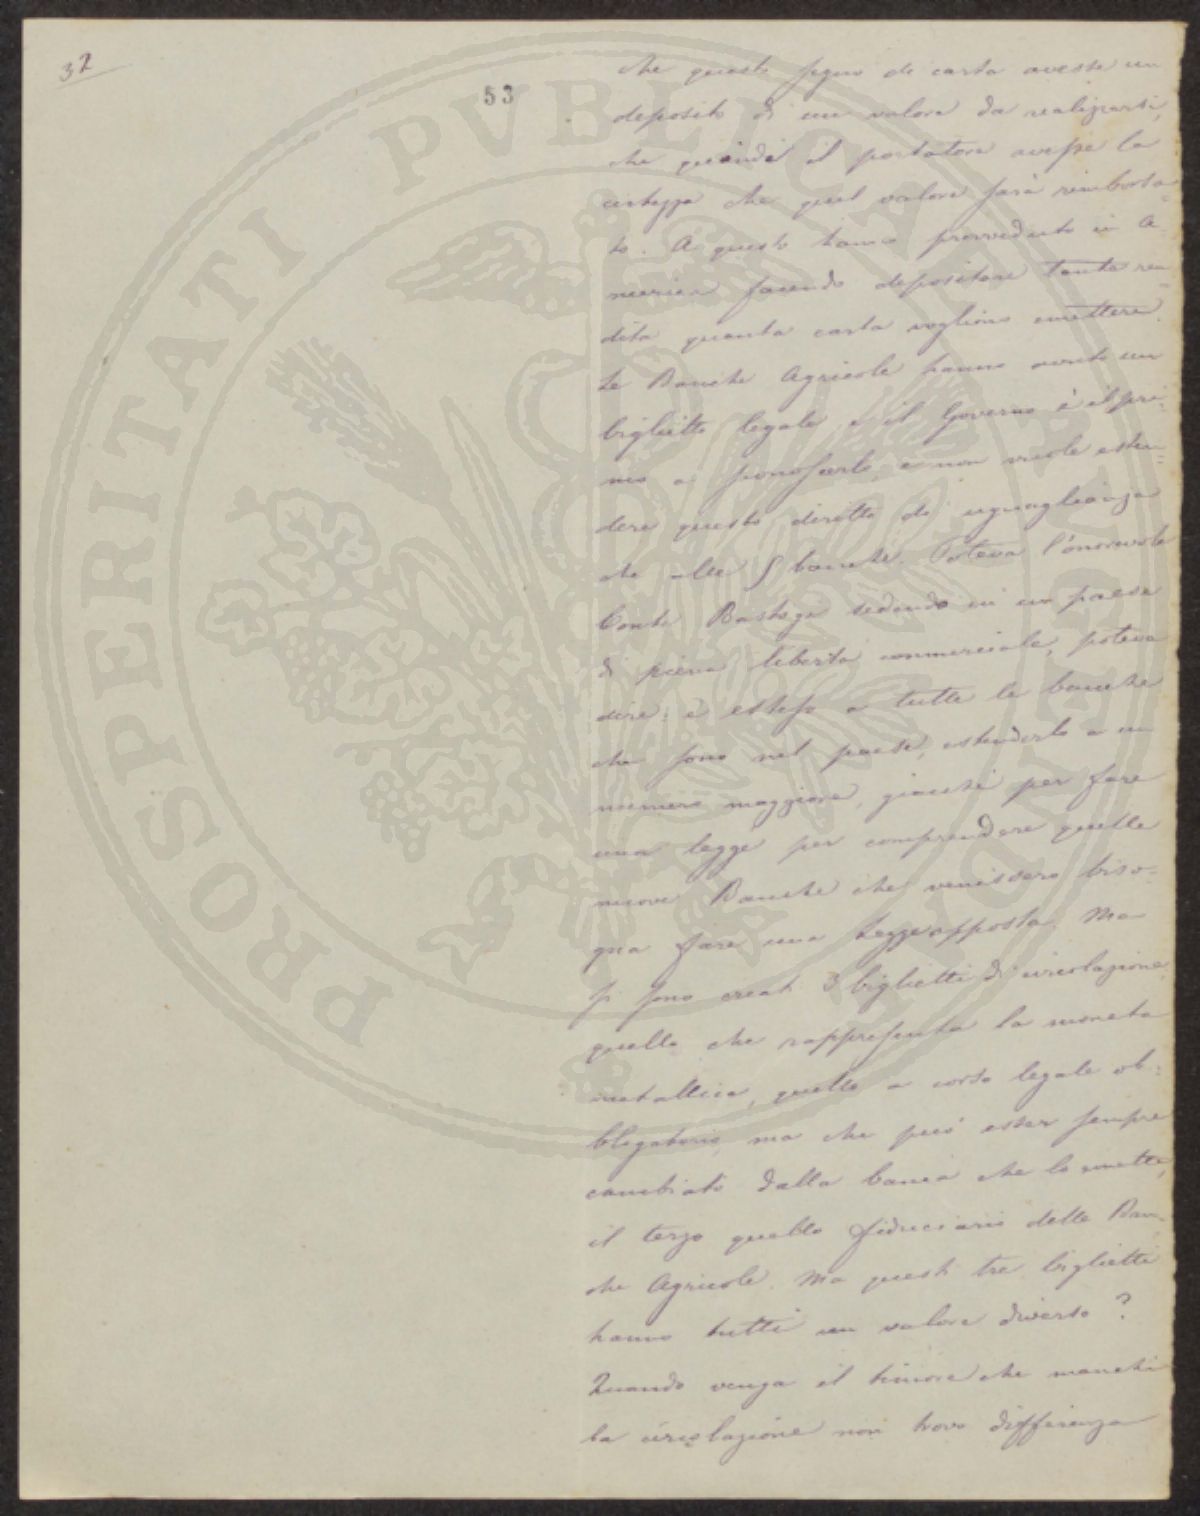 32
53
che questo segno di carta avesse un
deposito di un valore da realizzarsi,
che quindi il portatore avesse la
certezza che quel valore sarà rimborsa=
to. A questo hanno provveduto in A=
merica facendo depositare tanta ren=
dita quanta carta vogliono emettere.
Le Banche Agricole hanno avuto un
biglietto legale e il Governo è il pri=
mo a , e non vuole esten=
dere questo diritto di uguaglianza
che alle 5 banche. Poteva l'onorevole
Conte Bastogi sedendo in un paese
di piena libertà commerciale, poteva
dire: è esteso a tutte le banche
che sono nel paese, estenderlo a un
numero maggiore, giacché per fare
una legge per comprendere quelle
nuove Banche che venissero biso=
gna fare una legge apposta. Ma
si sono creati 3 biglietti di circolazione
quello che rappresenta la moneta
metallica, quello a corso legale ob=
bligatorio, ma che può esser sempre
cambiato dalla banca che lo emette,
il terzo quello fiduciario delle Ban=
che Agricole. Ma questi tre biglietti
hanno tutti un valore diverso?
Quando venga il timore che manchi
la circolazione non trovo differenza
PROSPERITATI PVBLICAE